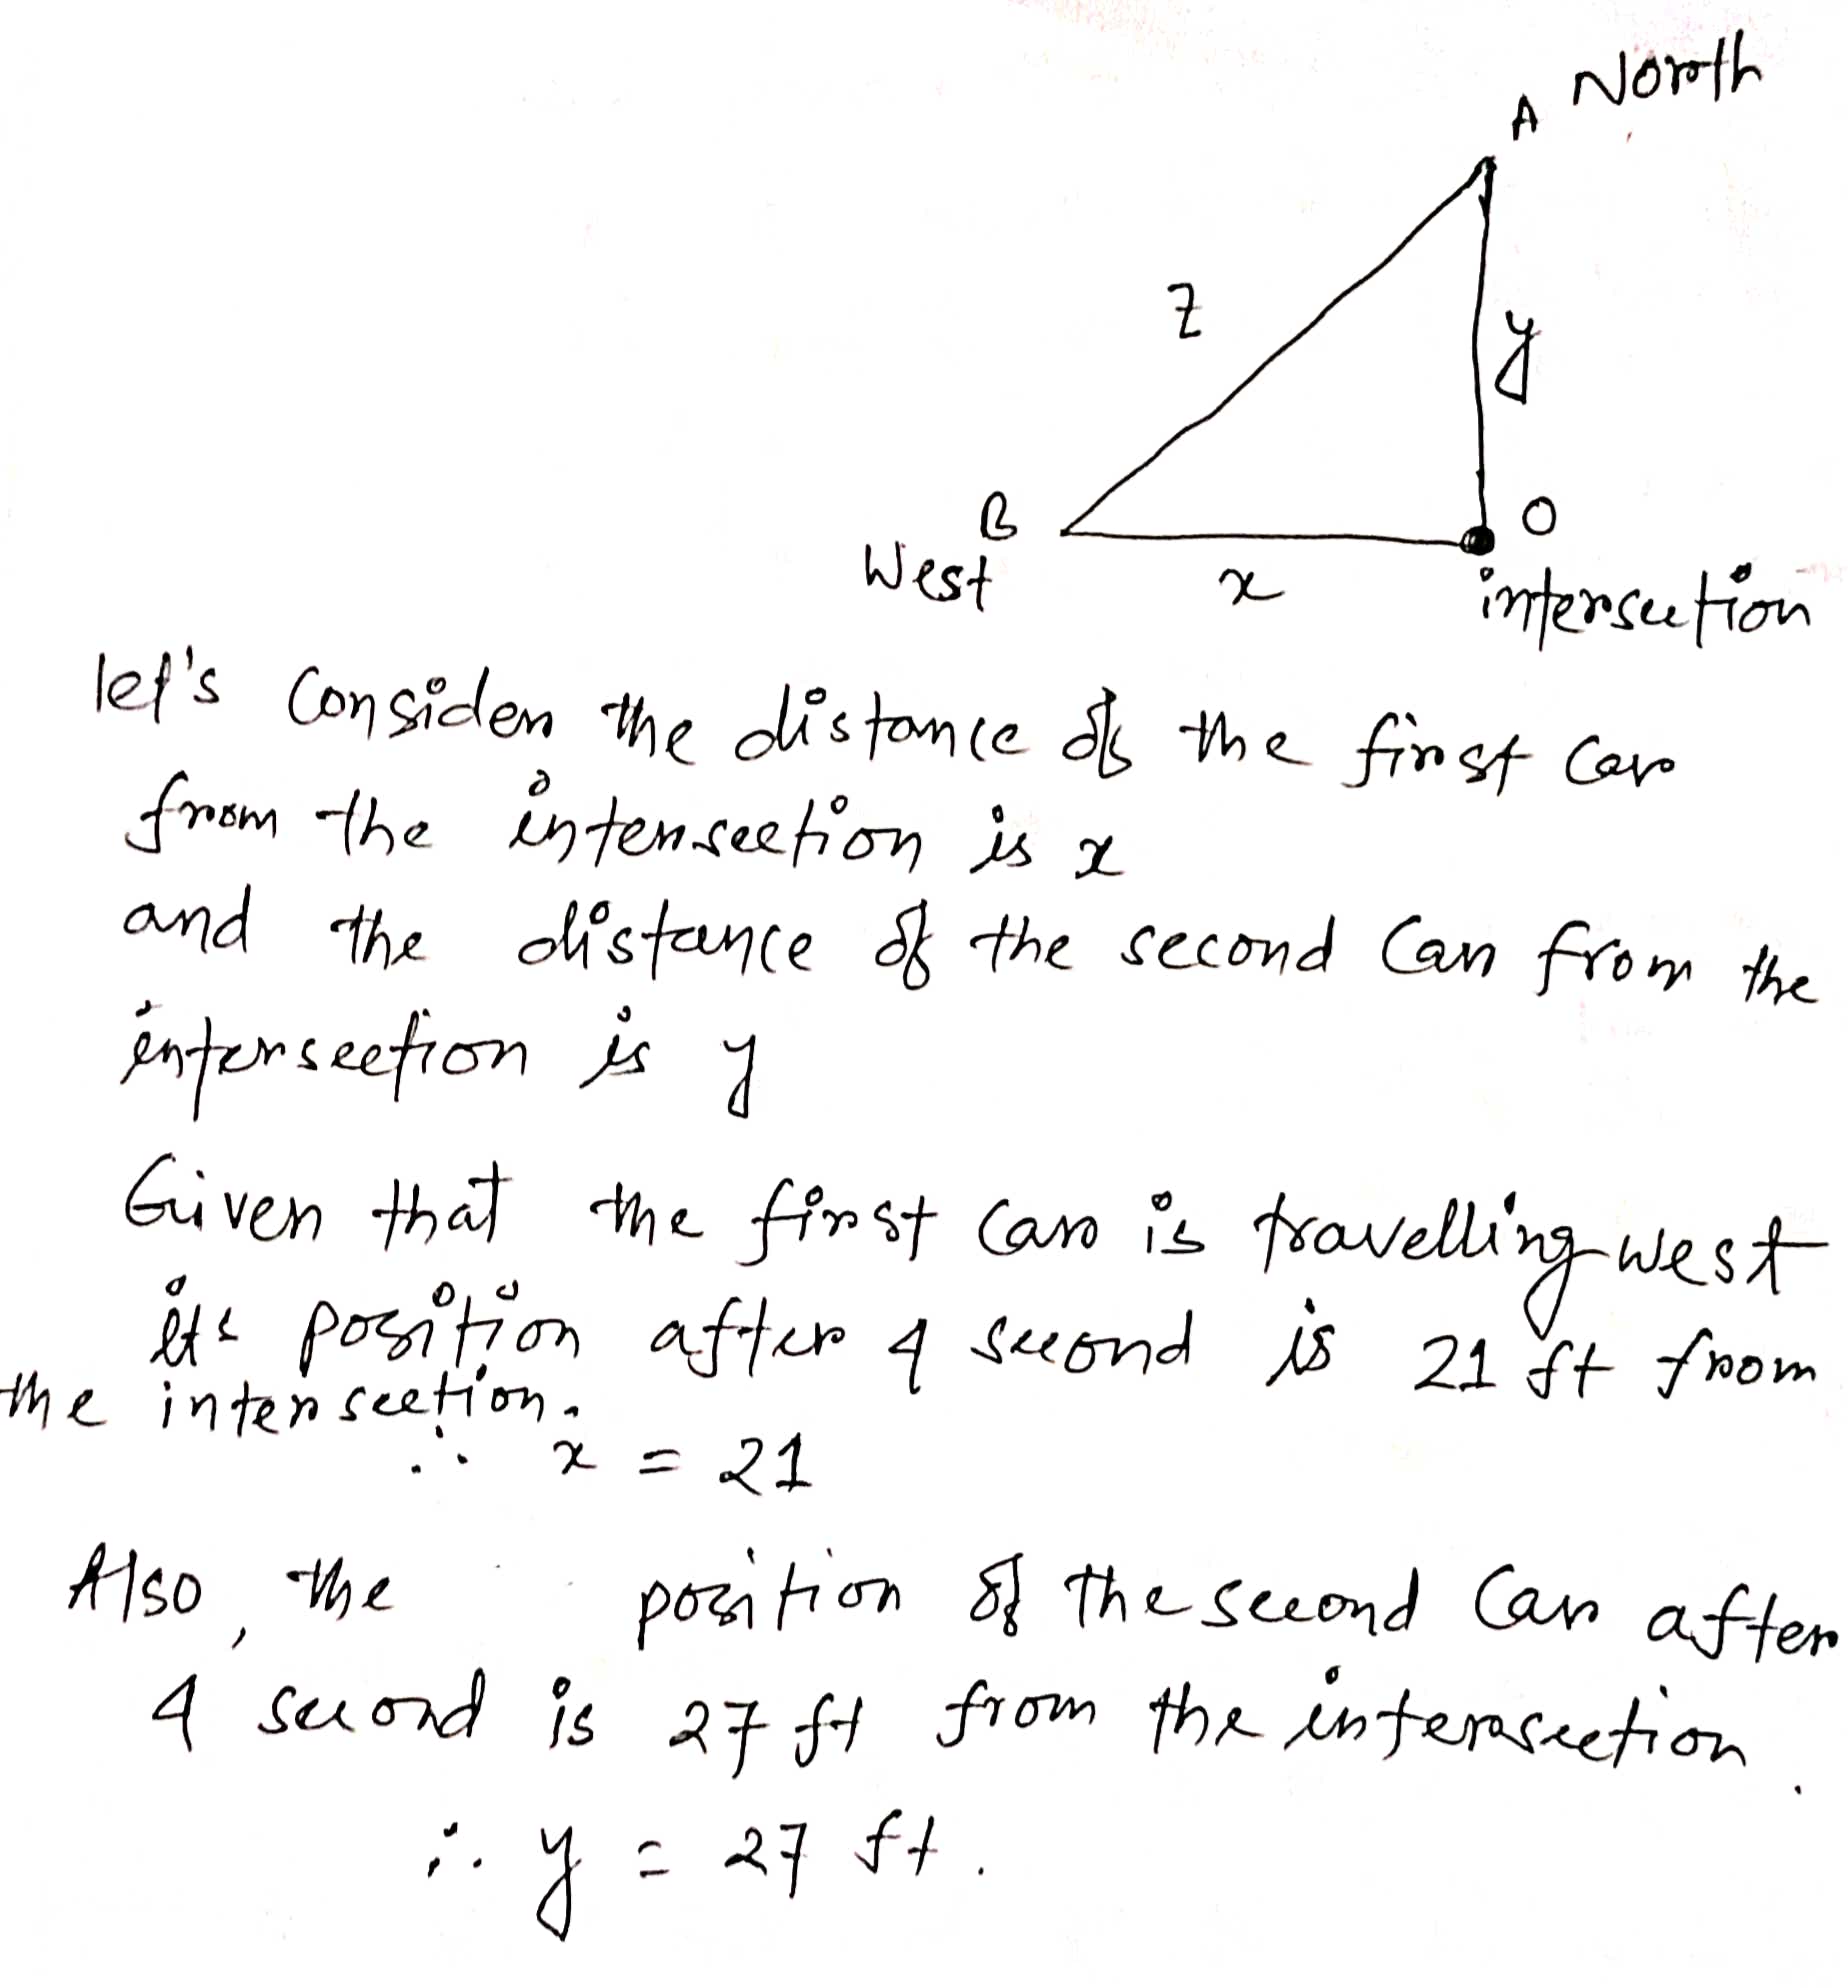 A North
z
y
B
O
West
x
intersection
let's Consider the distance of the first Car
from the intersection is x
and the distance of the second Car from the
intersection is y
Given that the first car is travelling west
its position after 4 second is 21 ft from
the intersection.
∴ x = 21
Also, the position of the second Car after
4 second is 27 ft from the intersection.
∴ y = 27 ft.